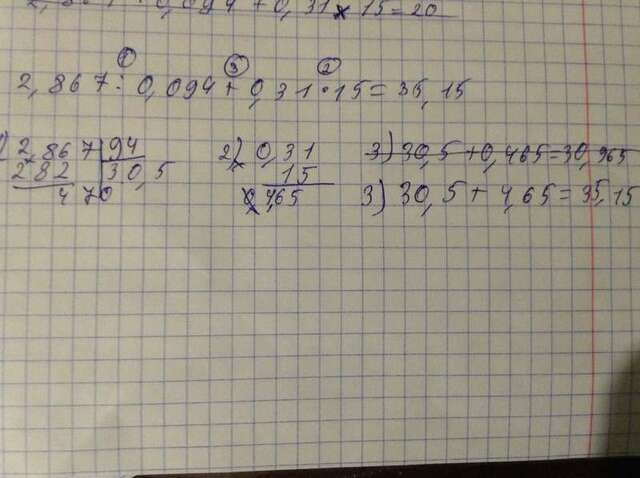 0,094 + 0,31 × 15 = 20
① ③ ②
2,867 : 0,094 + 0,31 · 15 = 35,15
1) 2,867 94 2) 0,31 3) 30,5 + 0,465 = 30,965
282 30,5 15 3) 30,5 + 4,65 = 35,15
470 4,65